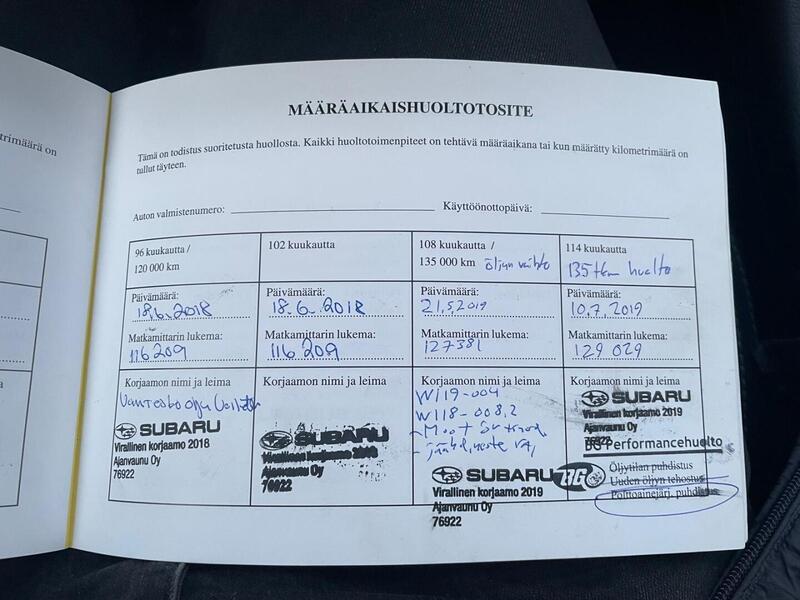 trimäärä on
MÄÄRÄAIKAISHUOLTOTOSITE
Tämä on todistus suoritetusta huollosta. Kaikki huoltotoimenpiteet on tehtävä määräaikana tai kun määrätty kilometrimäärä on
tullut täyteen.
Auton valmistenumero:
Käyttöönottopäivä:
96 kuukautta /
120 000 km
Päivämäärä:
18.6.2018
Matkamittarin lukema:
116 209
Korjaamon nimi ja leima
SUBARU
Virallinen korjaamo 2018
Ajanvaunu Oy
76922
102 kuukautta
Päivämäärä:
18.6.2018
Matkamittarin lukema:
116 209
Korjaamon nimi ja leima
SUBARU
Virallinen korjaamo 2018
Ajanvaunu Oy
76922
108 kuukautta /
135 000 km öljyn vaihto
Päivämäärä:
21.5.2019
Matkamittarin lukema:
127381
Korjaamon nimi ja leima
W119-004
W118-008.2
SUBARU
Virallinen korjaamo 2019
Ajanvaunu Oy
76922
114 kuukautta
135tkm huolto
Päivämäärä:
10.7.2019
Matkamittarin lukema:
129 029
Korjaamon nimi ja leima
SUBARU
Virallinen korjaamo 2019
Ajanvaunu Oy
76922
BG Performancehuolto
BG
Öljytilan puhdistus
Uuden öljyn tehostus
Polttoainejärj. puhdistus